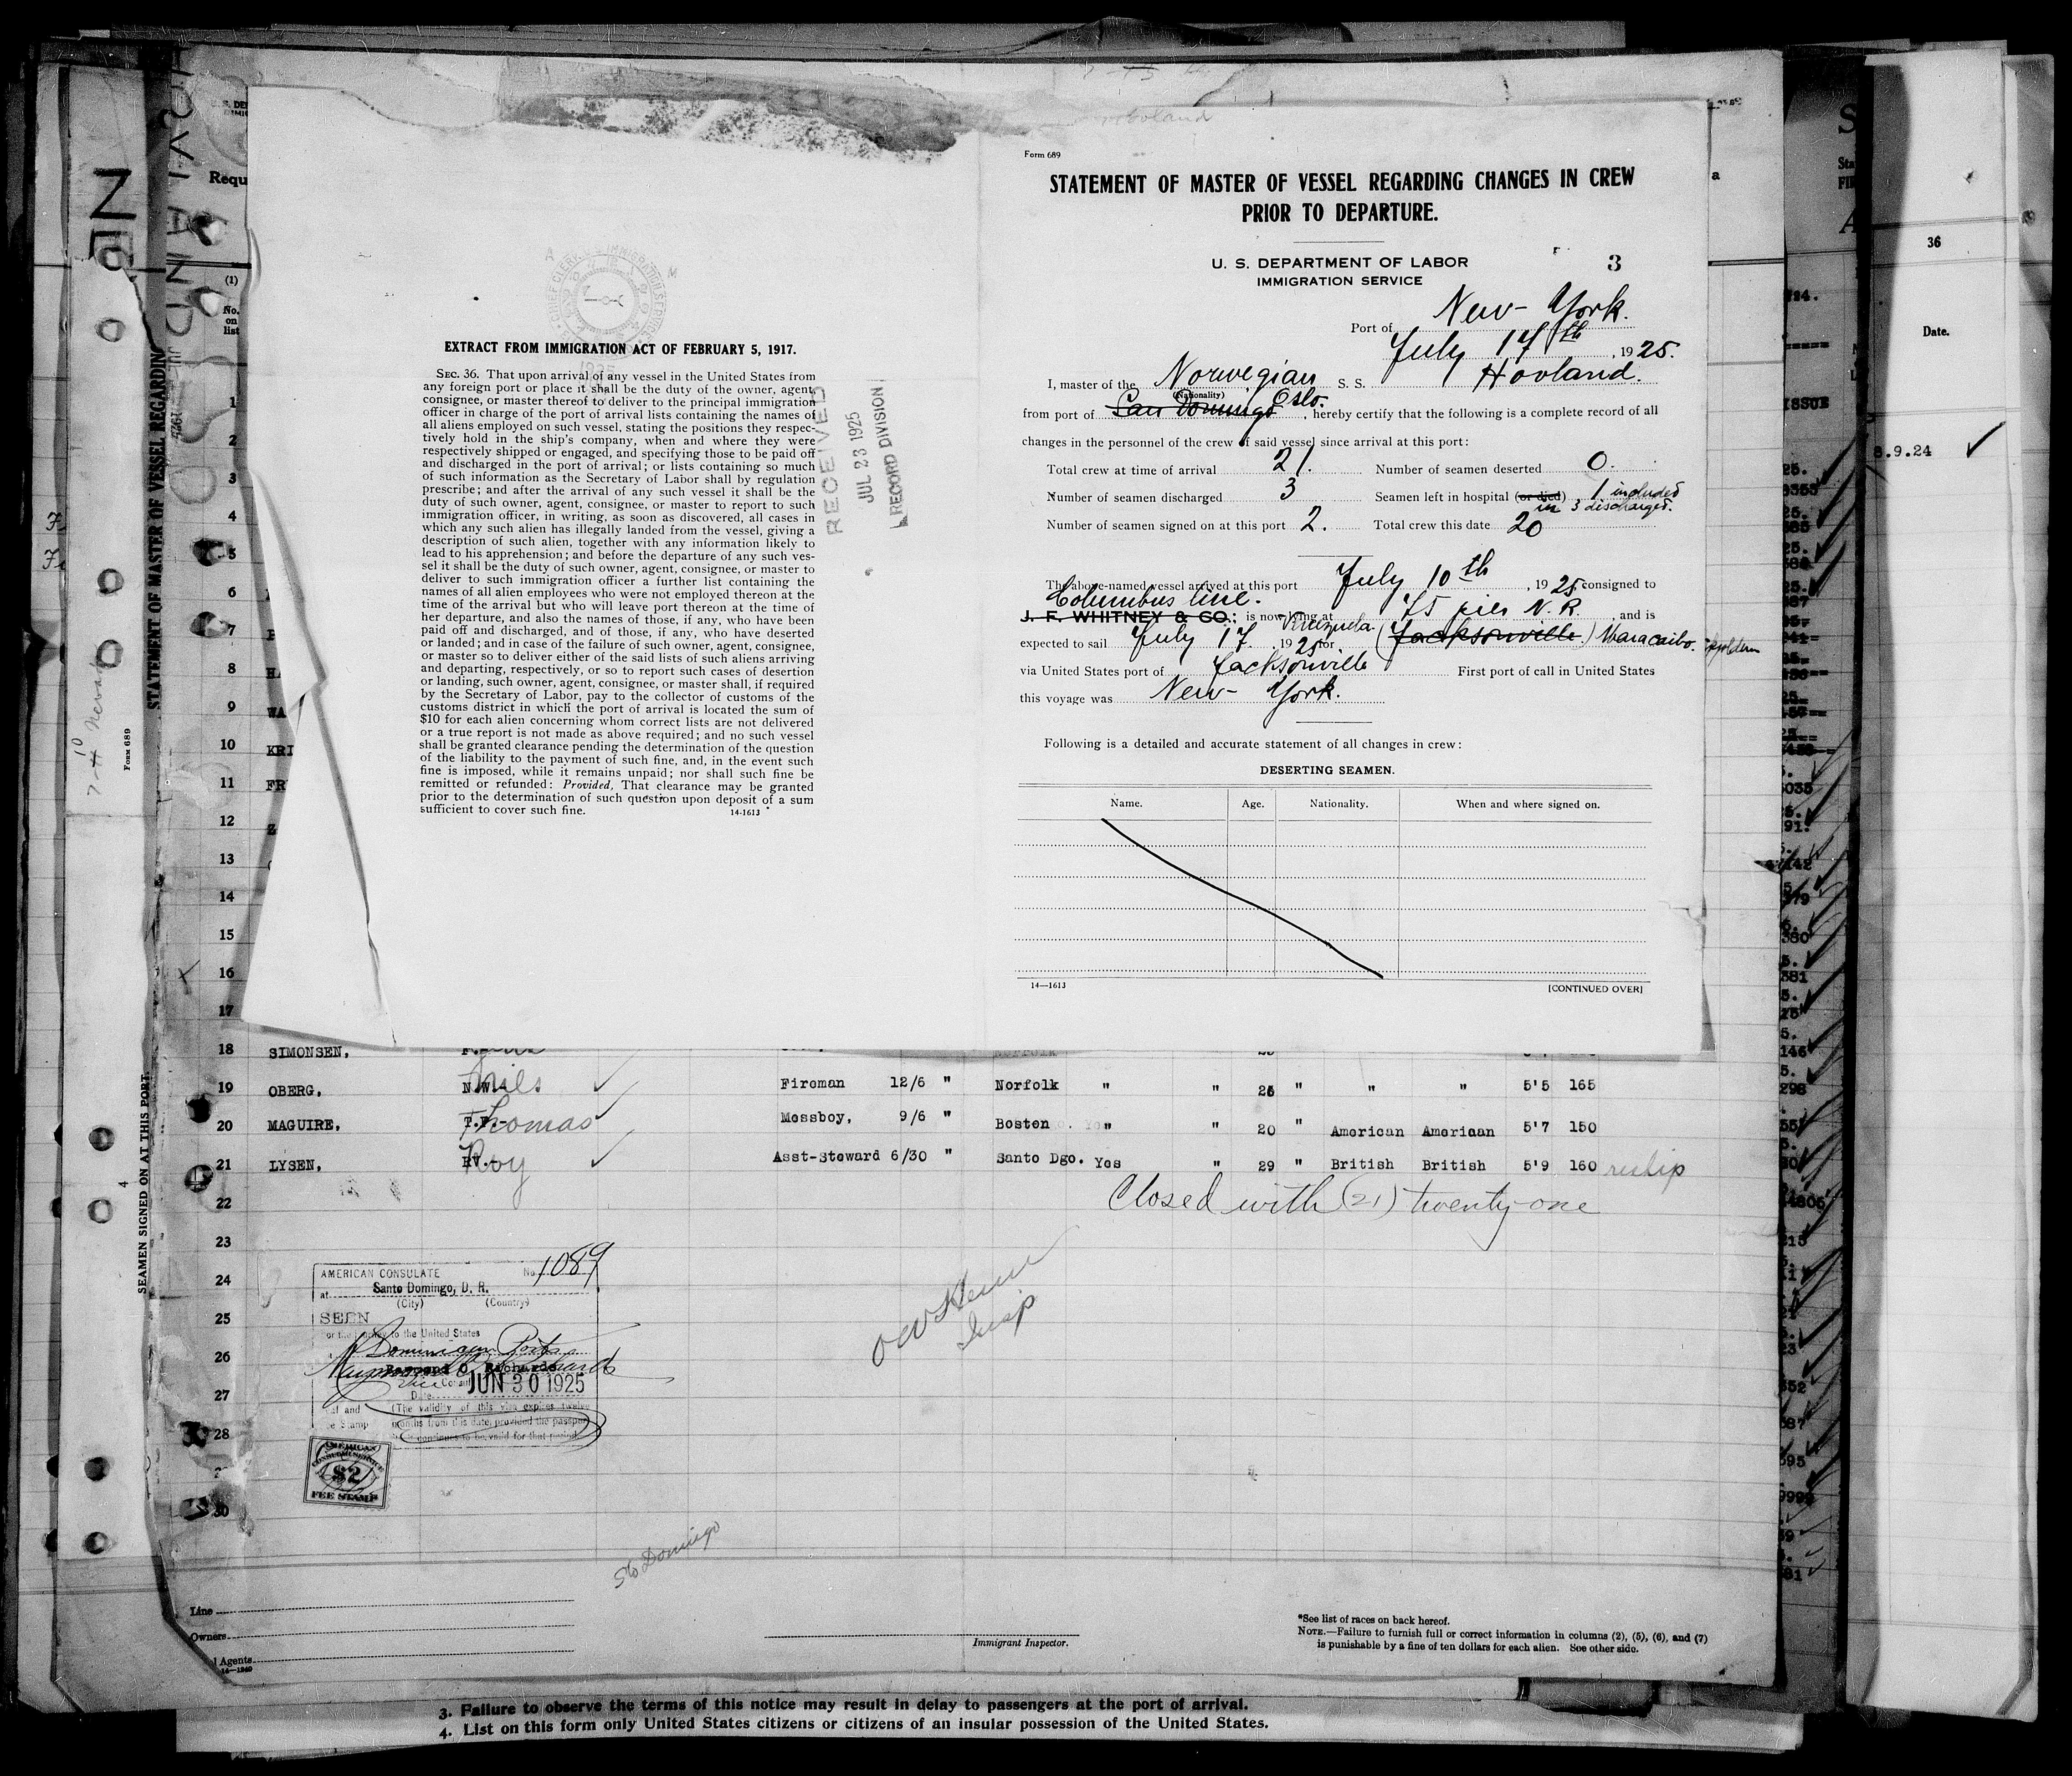 Form 689
STATEMENT OF MASTER OF VESSEL REGARDING CHANGES IN CREW
PRIOR TO DEPARTURE.
U. S. DEPARTMENT OF LABOR
IMMIGRATION SERVICE
3
Port of New-York.
July 17th, 1925.
I, master of the Norwegian S. S. Hovland.
(Nationality)
from port of San Domingo Oslo., hereby certify that the following is a complete record of all
changes in the personnel of the crew of said vessel since arrival at this port:
Total crew at time of arrival 21. Number of seamen deserted 0.
Number of seamen discharged 3 Seamen left in hospital (or died) 1 included
in 3 discharged.
Number of seamen signed on at this port 2. Total crew this date 20
The above-named vessel arrived at this port July 10th, 1925, consigned to
Columbus Line.
J. F. WHITNEY & CO.; is now lying at 75 pier N. R., and is
expected to sail July 17, 1925 for Venezuela (Jacksonville) Maracaibo.
via United States port of Jacksonville First port of call in United States
this voyage was New-York.
Following is a detailed and accurate statement of all changes in crew:
DESERTING SEAMEN.
Name. Age. Nationality. When and where signed on.
14—1613
[CONTINUED OVER]
EXTRACT FROM IMMIGRATION ACT OF FEBRUARY 5, 1917.
SEC. 36. That upon arrival of any vessel in the United States from
any foreign port or place it shall be the duty of the owner, agent,
consignee, or master thereof to deliver to the principal immigration
officer in charge of the port of arrival lists containing the names of
all aliens employed on such vessel, stating the positions they respec-
tively hold in the ship's company, when and where they were
respectively shipped or engaged, and specifying those to be paid off
and discharged in the port of arrival; or lists containing so much
of such information as the Secretary of Labor shall by regulation
prescribe; and after the arrival of any such vessel it shall be the
duty of such owner, agent, consignee, or master to report to such
immigration officer, in writing, as soon as discovered, all cases in
which any such alien has illegally landed from the vessel, giving a
description of such alien, together with any information likely to
lead to his apprehension; and before the departure of any such ves-
sel it shall be the duty of such owner, agent, consignee, or master to
deliver to such immigration officer a further list containing the
names of all alien employees who were not employed thereon at the
time of the arrival but who will leave port thereon at the time of
her departure, and also the names of those, if any, who have been
paid off and discharged, and of those, if any, who have deserted
or landed; and in case of the failure of such owner, agent, consignee,
or master so to deliver either of the said lists of such aliens arriving
and departing, respectively, or so to report such cases of desertion
or landing, such owner, agent, consignee, or master shall, if required
by the Secretary of Labor, pay to the collector of customs of the
customs district in which the port of arrival is located the sum of
$10 for each alien concerning whom correct lists are not delivered
or a true report is not made as above required; and no such vessel
shall be granted clearance pending the determination of the question
of the liability to the payment of such fine, and, in the event such
fine is imposed, while it remains unpaid; nor shall such fine be
remitted or refunded: Provided, That clearance may be granted
prior to the determination of such question upon deposit of a sum
sufficient to cover such fine.
14-1613
RECEIVED
JUL 23 1925
RECORD DIVISION
HOVLAND
STATEMENT OF MASTER OF VESSEL REGARDING
SEAMEN SIGNED ON AT THIS PORT.
Form 689
4
Requ
(1)
No.
on
list
1
2
3
4
5
6
7
8
9
10 KRI
11 FR
12
13
14
15
16
17
18 SIMONSEN,
19 OBERG, N.W.- Nils Fireman 12/6 " Norfolk " " 26 " " " 5'5 165
20 MAGUIRE, T.F.- Thomas Messboy, 9/6 " Boston " " 20 " American American 5'7 150
21 LYSEN, Roy Asst-Steward 6/30 " Santo Dgo. Yes " 29 " British British 5'9 160 reship
22 Closed with (21) twenty-one
23
24
25
26
27
28
30
AMERICAN CONSULATE No. 1089
at Santo Domingo, D. R.
(City) (Country)
SEEN
for the journey to the United States
Dominican Ports
Vice Consul
Date JUN 30 1925
(The validity of this visa expires twelve
months from this date, provided the passport
continues to be valid for that period.)
AMERICAN
CONSULAR SERVICE
$2
FEE STAMP
Insp
Sto Domingo
Line
Owners
Agents
Immigrant Inspector.
*See list of races on back hereof.
NOTE.—Failure to furnish full or correct information in columns (2), (5), (6), and (7)
is punishable by a fine of ten dollars for each alien. See other side.
3. Failure to observe the terms of this notice may result in delay to passengers at the port of arrival.
4. List on this form only United States citizens or citizens of an insular possession of the United States.
36
Date.
8.9.24